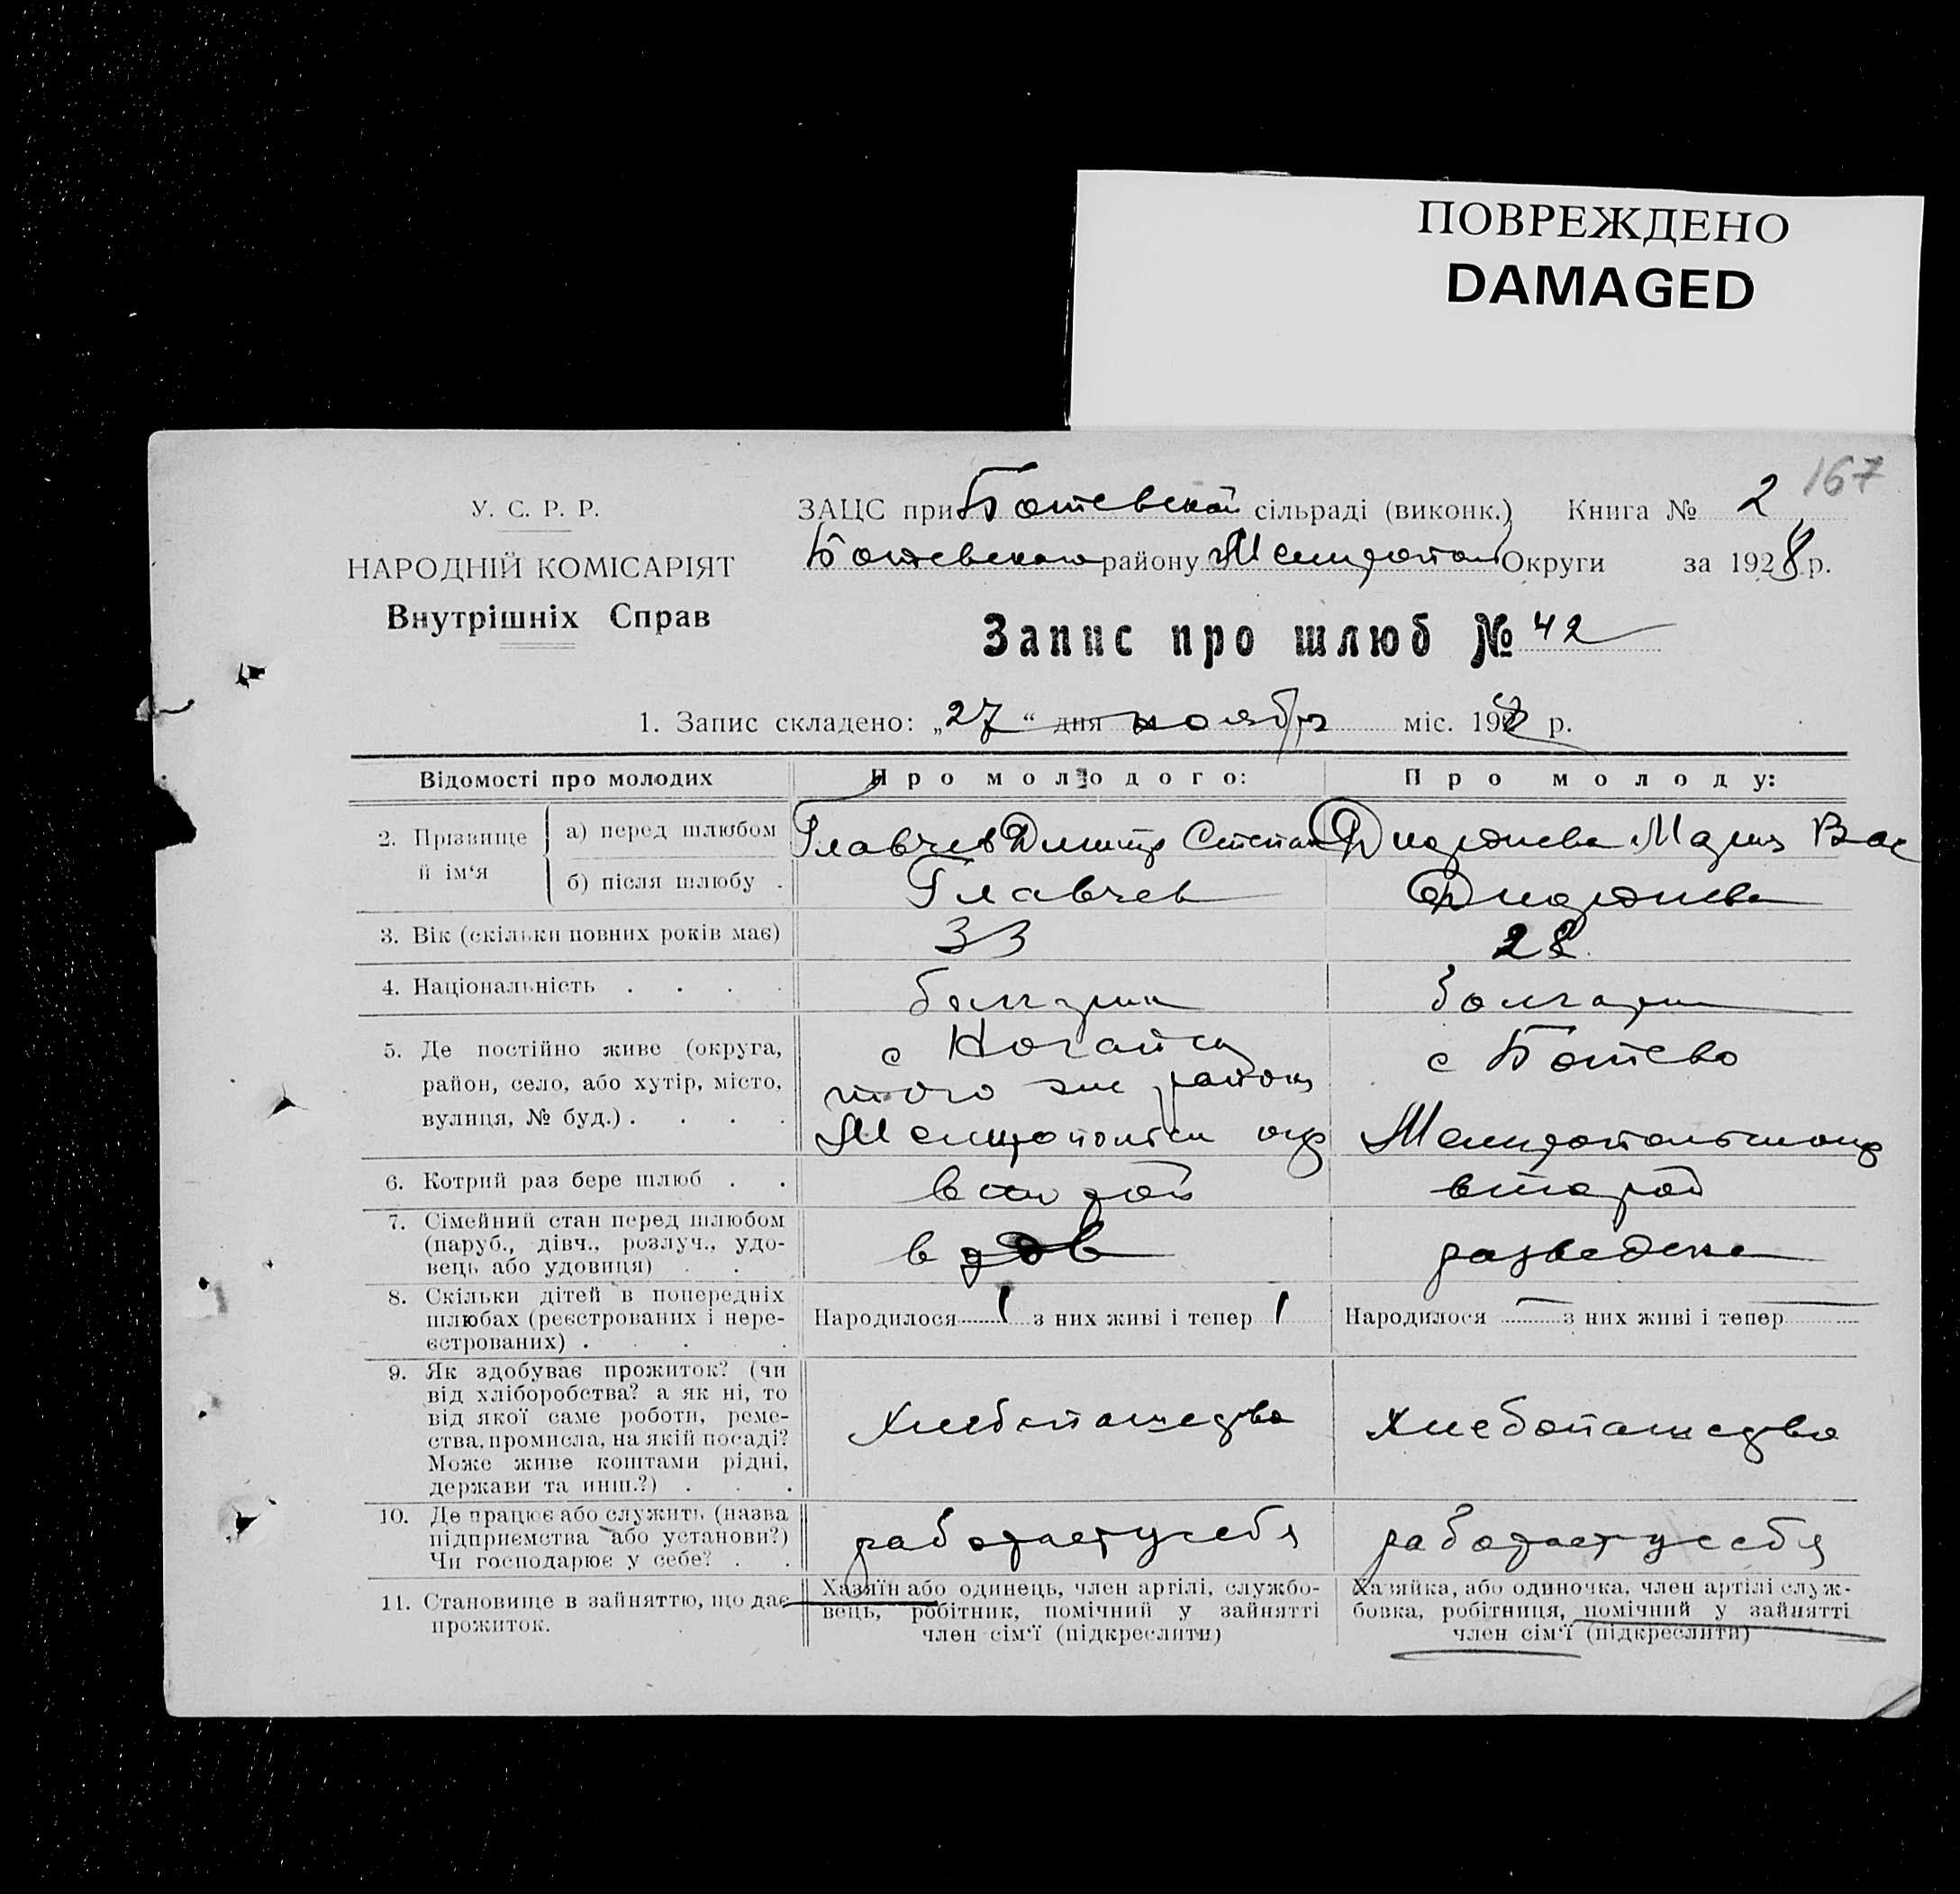 ПОВРЕЖДЕНО
DAMAGED
167
У. С. Р. Р.
НАРОДНІЙ КОМІСАРІЯТ
Внутрішніх Справ
ЗАЦС при Ботевской сільраді (виконк.) Книга № 2
Ботевского району Мелитопол Округи за 1928 р.
Запис про шлюб № 42
1. Запис складено: „27“ дня ноября міс. 1928 р.
Відомості про молодих
Про молодого:
Про молоду:
2. Прізвище й ім‘я
а) перед шлюбом
Главчев Дмитр Степан
Мария Вас
б) після шлюбу .
Главчев
3. Вік (скільки повних років має)
33
28
4. Національність . . . .
болгарин
болгарка
5. Де постійно живе (округа,
район, село, або хутір, місто,
вулиця, № буд.) . . . .
с Ногайск
того же района
Мелитопольск окр
с Ботево
Мелитопольск окр
6. Котрий раз бере шлюб . .
второй
второй
7. Сімейний стан перед шлюбом
(паруб., дівч., розлуч., удо-
вець або удовиця) . .
вдов
разведена
8. Скільки дітей в попередніх
шлюбах (реєстрованих і нере-
єстрованих) . . . .
Народилося 1 з них живі і тепер 1
Народилося — з них живі і тепер —
9. Як здобуває прожиток? (чи
від хліборобства? а як ні, то
від якої саме роботи, реме-
ства, промисла, на якій посаді?
Може живе коштами рідні,
держави та инш.?) . . .
Хлебопашество
Хлебопашество
10. Де працює або служить (назва
підприємства або установи?)
Чи господарює у себе? . .
работает у себя
работает у себя
11. Становище в зайняттю, що дає
прожиток.
Хазяїн або одинець, член артілі, службо-
вець, робітник, помічний у зайнятті
член сім‘ї (підкреслити)
Хазяйка, або одиночка, член артілі служ-
бовка, робітниця, помічний у зайнятті
член сім‘ї (підкреслити)